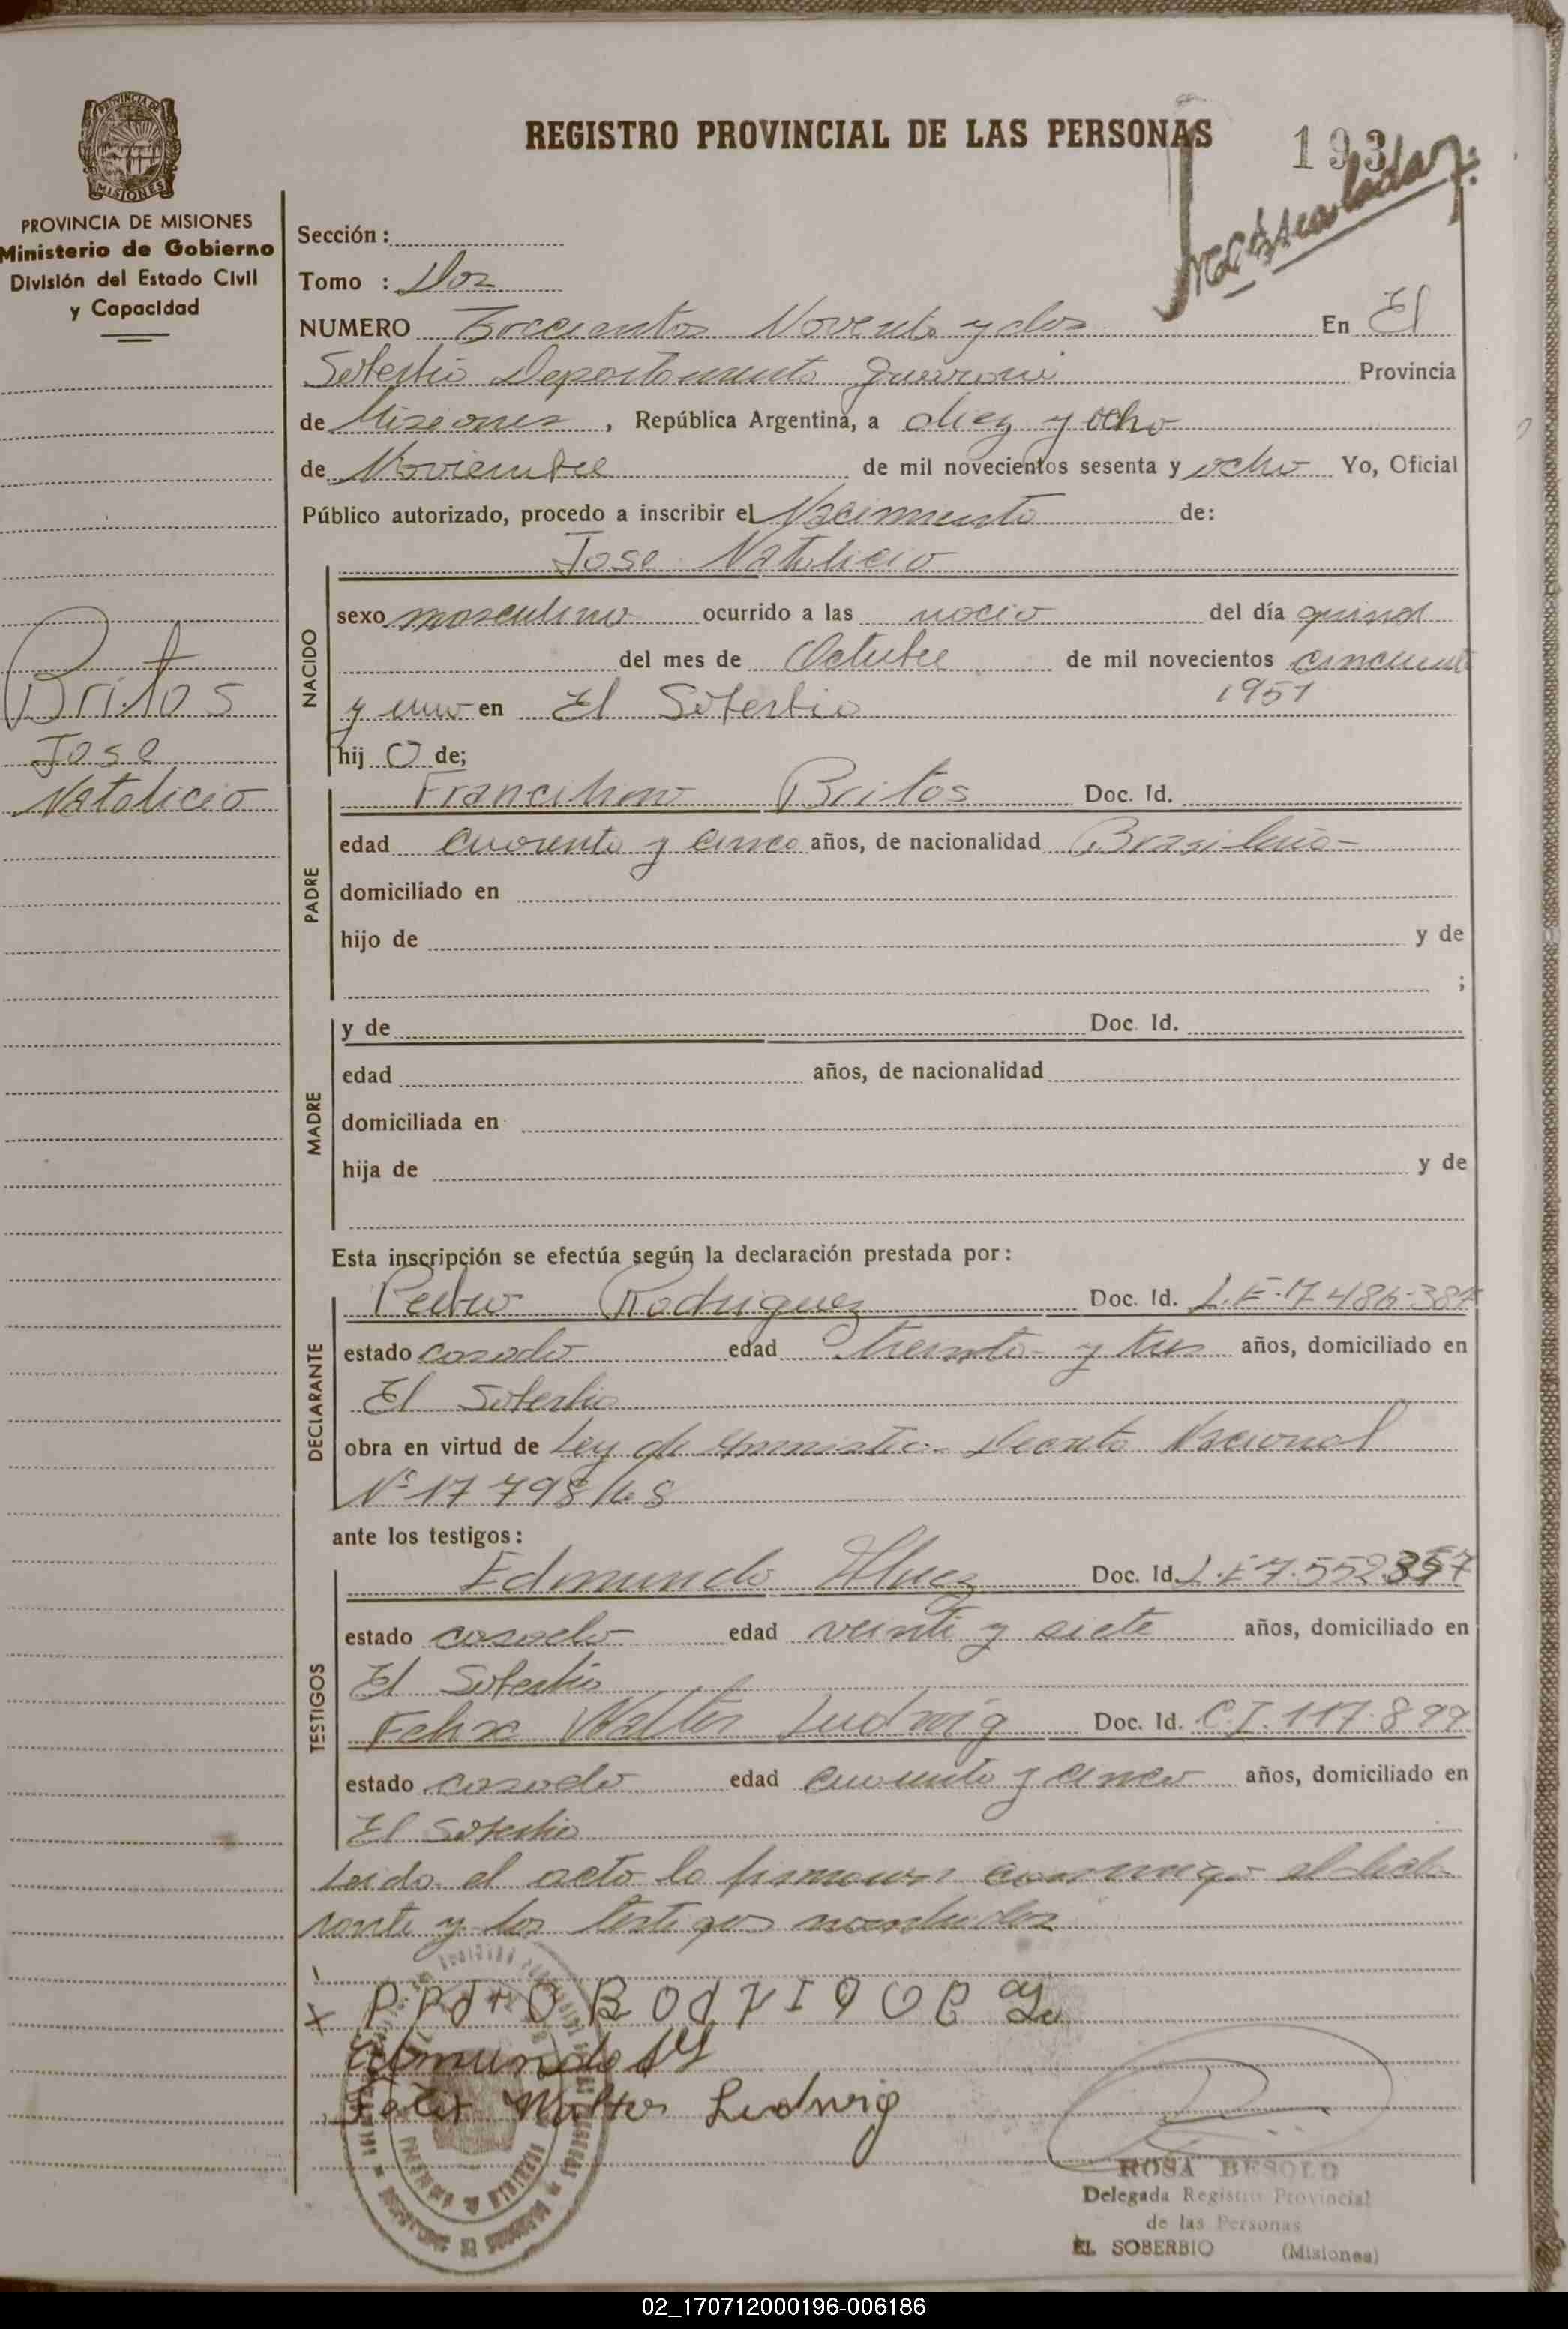 REGISTRO PROVINCIAL DE LAS PERSONAS
193
PROVINCIA DE MISIONES
Ministerio de Gobierno
División del Estado Civil
y Capacidad
Sección :
Tomo : Dos
NUMERO Noventa y dos En El
Soberbio Departamento Guarani Provincia
de Misiones , República Argentina, a diez y ocho
de Noviembre de mil novecientos sesenta y ocho Yo, Oficial
Público autorizado, procedo a inscribir el Nacimiento de:
Jose Natalicio
NACIDO
sexo masculino ocurrido a las del día
del mes de Octubre de mil novecientos cincuent
1951
y uno en El Soberbio
hij O de;
Britos
Jose
Natalicio
PADRE
Britos Doc. Id.
edad cuarenta y cinco años, de nacionalidad
domiciliado en
hijo de y de
;
MADRE
y de Doc. Id.
edad años, de nacionalidad
domiciliada en
hija de y de
Esta inscripción se efectúa según la declaración prestada por :
DECLARANTE
Pedro Rodriguez Doc. Id.
estado casado edad treinta y tres años, domiciliado en
El Soberbio
obra en virtud de Ley de Decreto Nacional
Nº 17 798/68
ante los testigos :
TESTIGOS
Edmundo Doc. Id.
estado casado edad veinti y siete años, domiciliado en
El Soberbio
Felix Walter Ludwig Doc. Id. C.I. 117.899
estado casado edad cuarenta y cinco años, domiciliado en
El Soberbio
Leida el acta la firman conmigo el decla
rante y los testigos nombrados
Edmundo
Felix Walter Ludwig
ROSA BESOLD
Delegada Registro Provincial
de las Personas
EL SOBERBIO (Misiones)
02_170712000196-006186